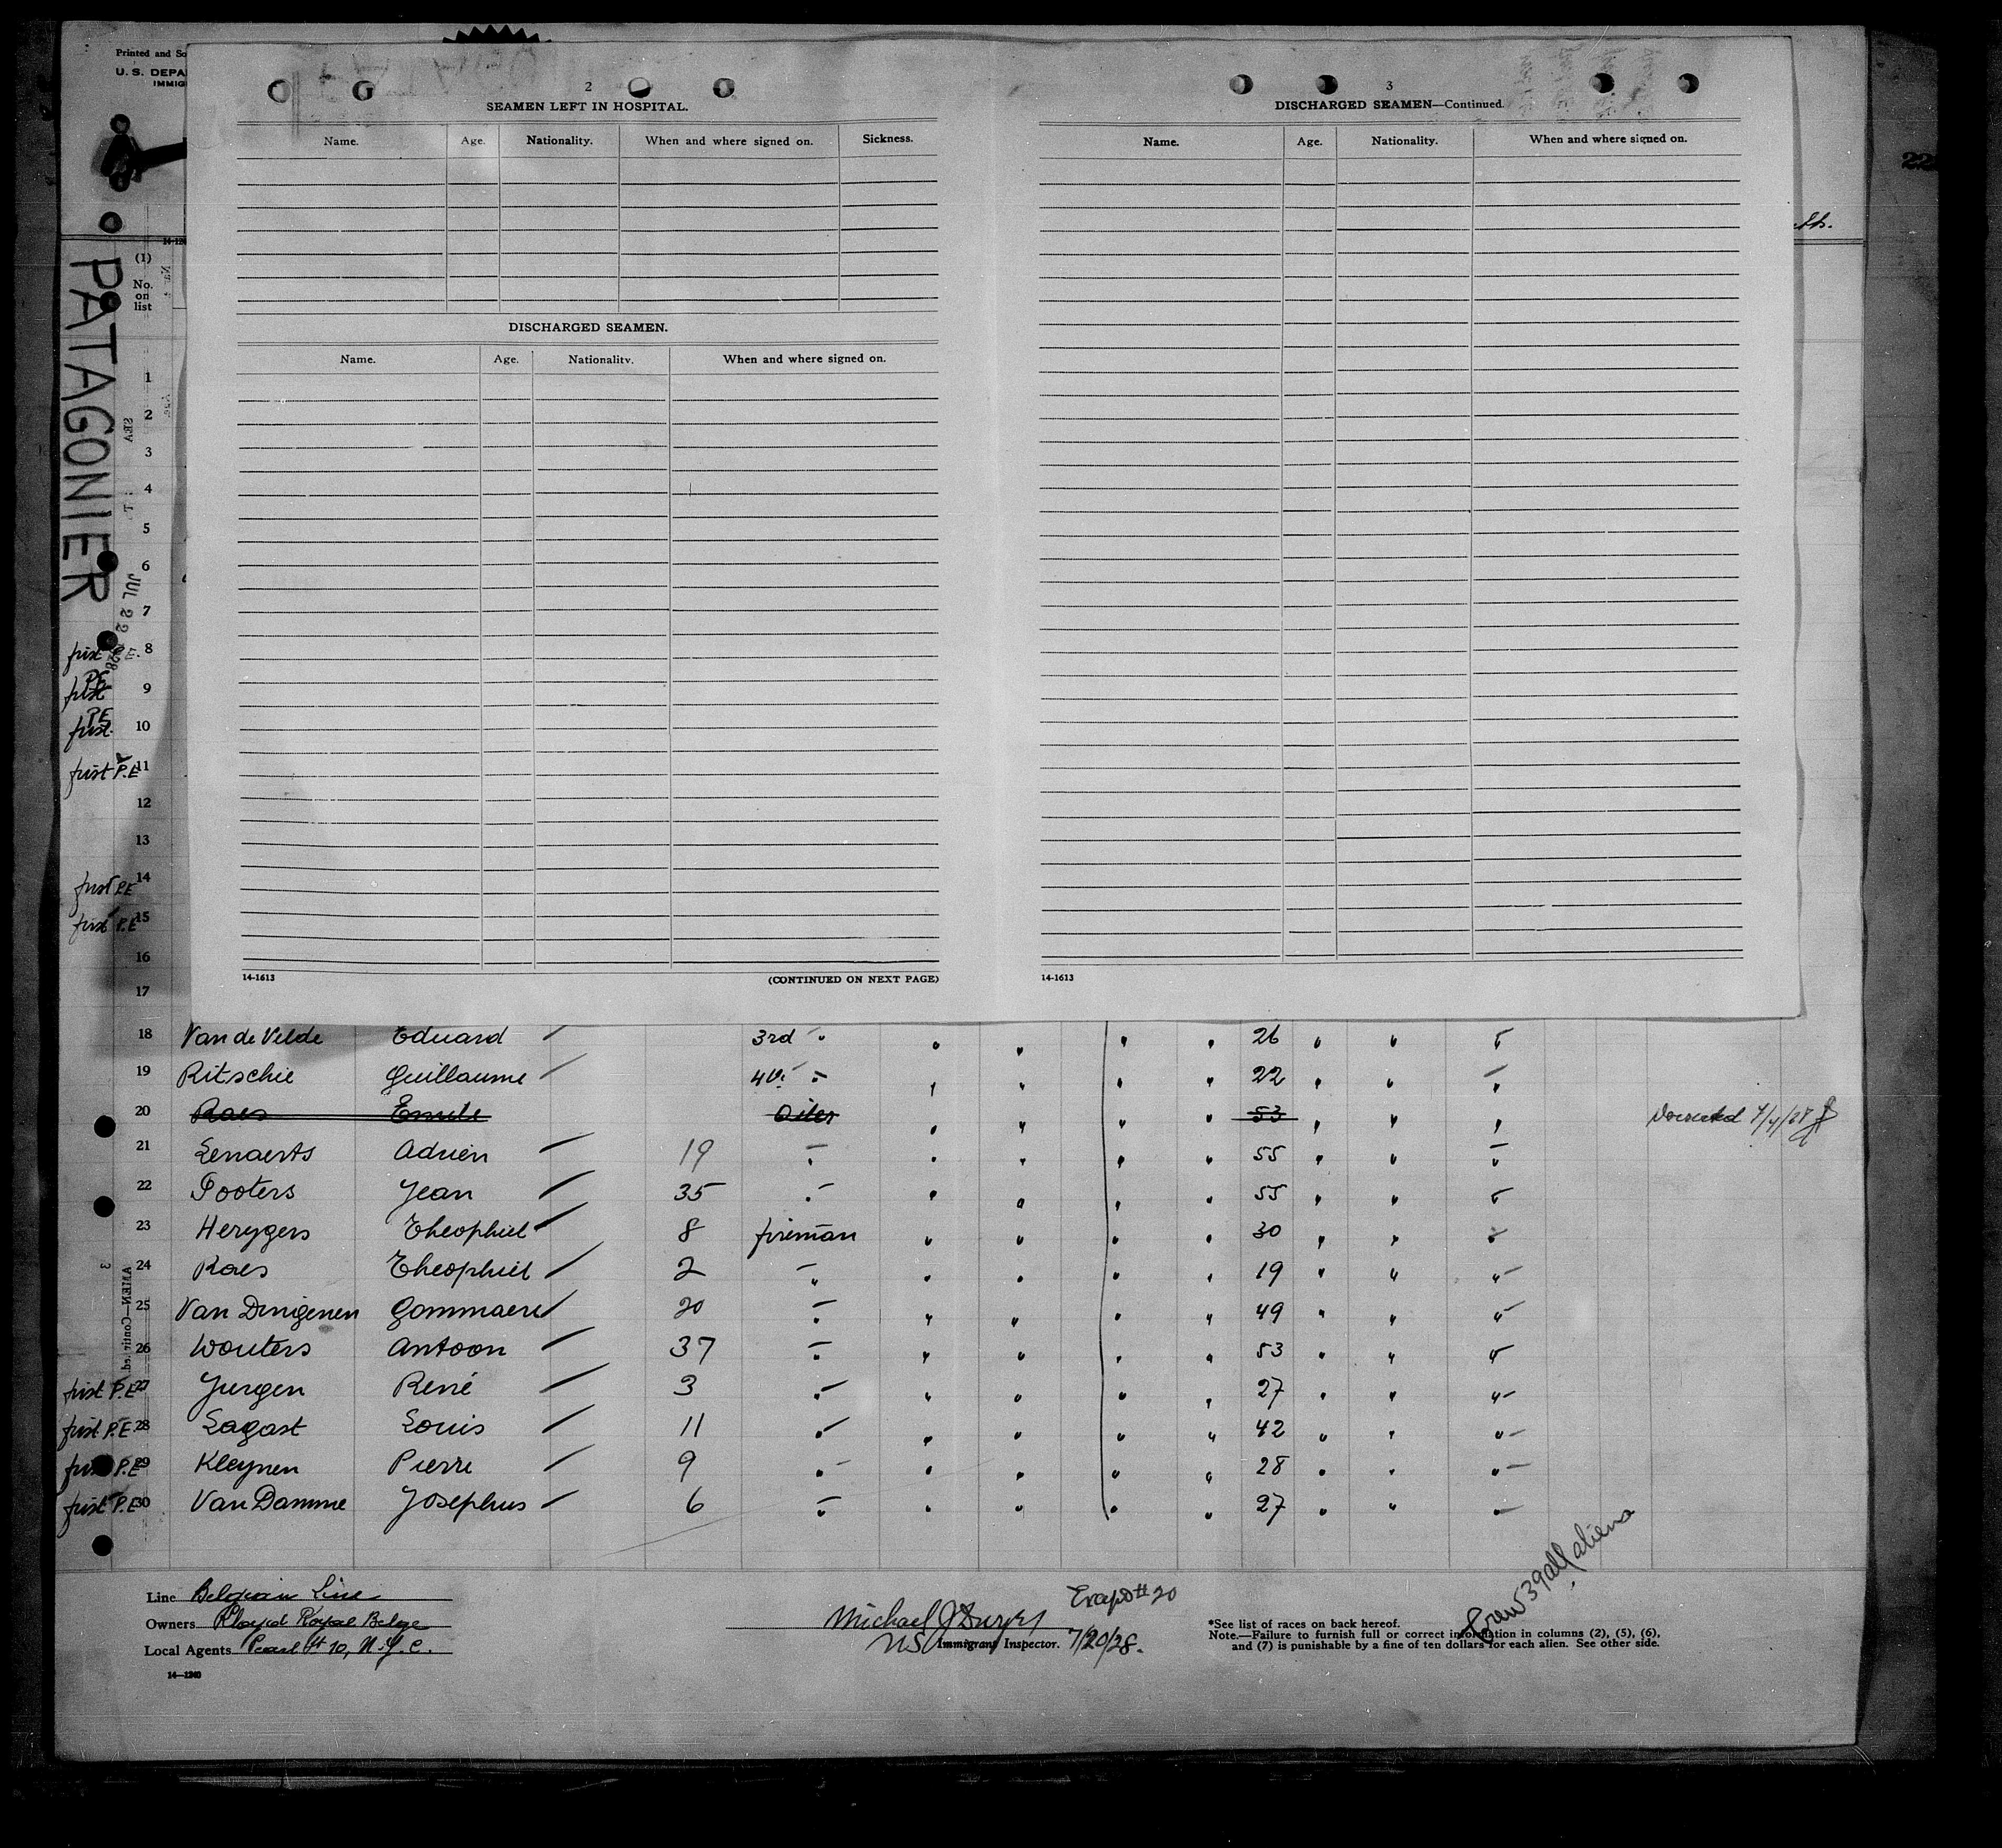 Printed and So
U. S. DEPA
IMMIG
PATAGONIER
(1)
No.
on
list
JUL 22
2
SEAMEN LEFT IN HOSPITAL.
Name. Age. Nationality. When and where signed on. Sickness.
DISCHARGED SEAMEN.
Name. Age. Nationality. When and where signed on.
14-1613 (CONTINUED ON NEXT PAGE)
3
DISCHARGED SEAMEN—Continued.
Name. Age. Nationality. When and where signed on.
14-1613
1
2
3
4
5
6
7
first 8
first PE 9
first PE 10
first P.E 11
12
13
first P.E 14
first P.E 15
16
17
18 Van de Velde Eduard 3rd " " " " " 26 " " "
19 Ritschie Guillaume " " " " " 22 " " "
20 Raes Emile Oiler " " " " 53 " " "
21 Lenaerts Adrien 19 " " " " " 55 " " "
22 Pooters Jean 35 " " " " " 55 " " "
23 Herygers Theophiel 8 fireman " " " " 30 " " "
24 Raes Theophiel 2 " " " " " 19 " " "
25 Van Dingenen Gommaere 20 " " " " " 49 " " "
26 Wouters Antoon 37 " " " " " 53 " " "
first P.E 27 Jurgen René 3 " " " " " 27 " " "
first P.E. 28 Lagast Louis 11 " " " " " 42 " " "
first P.E 29 Kleynen Pierre 9 " " " " " 28 " " "
first P.E 30 Van Damme Josephus 6 " " " " " 27 " " "
Crew 39 all aliens
Line Belgian Line
Owners Lloyd Royal Belge
Local Agents Pearl St 10, N.Y.C.
14—1240
#20
Michael J
US Immigrant Inspector. 7/20/28.
*See list of races on back hereof.
Note.—Failure to furnish full or correct information in columns (2), (5), (6),
and (7) is punishable by a fine of ten dollars for each alien. See other side.